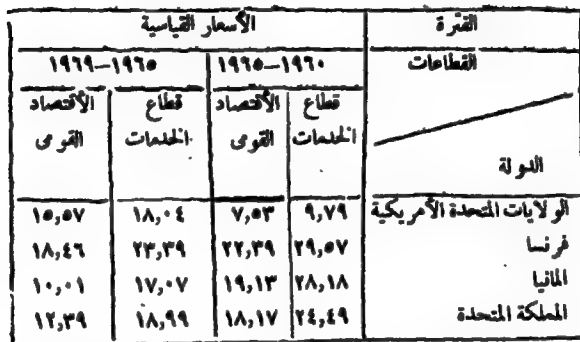 الفترة الأسعار القياسية
القطاعات ١٩٦٠—١٩٦٥ ١٩٦٥—١٩٦٩
قطاع الأقتصاد قطاع الأقتصاد
الخدمات القومى الخدمات القومى
الدولة
الولايات المتحدة الأمريكية ٩,٧٩ ٧,٥٣ ١٨,٠٤ ١٥,٥٧
فرنسا ٢٩,٥٧ ٢٢,٣٩ ٢٣,٣٩ ١٨,٤٦
المانيا ٢٨,١٨ ١٩,١٣ ١٧,٠٧ ١٠,٠١
المملكة المتحدة ٢٤,٤٩ ١٨,١٧ ١٨,٩٩ ١٢,٣٩